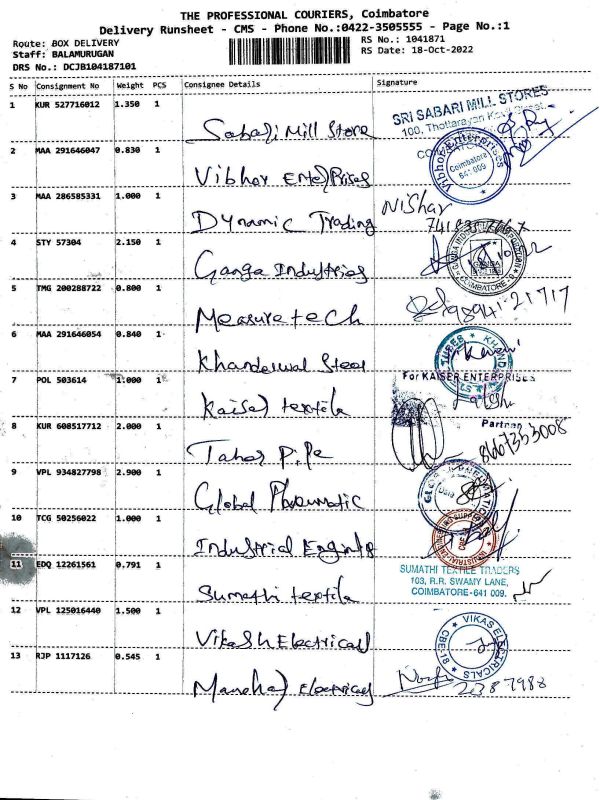 THE PROFESSIONAL COURIERS, Coimbatore
Delivery Runsheet - CMS - Phone No.:0422-3505555 - Page No.:1
Route: BOX DELIVERY
RS No.: 1041871
Staff: BALAMURUGAN
RS Date: 18-Oct-2022
DRS No.: DCJB104187101
S No Consignment No Weight PCS Consignee Details Signature
1 KUR 527716012 1.350 1
Sabari Mill Store
SRI SABARI MILL STORES
100, Thottarayan Kovil Street,
2 MAA 291646047 0.830 1
Vibhor Enterprises
Vibhor Enterprises
Coimbatore
641 009
3 MAA 286585331 1.000 1
Dynamic Trading
Nishar
4 STY 57304 2.150 1
Ganga Industries
GANGA
COIMBATORE
5 TMG 200288722 0.800 1
Measuretech
98941-21717
6 MAA 291646054 0.840 1
Khandelwal Steel
7 POL 503614 1.000 1
Kaiser textile
For KAISER ENTERPRISES
Partner
8 KUR 608517712 2.000 1
Taher P.Pe
8667353008
9 VPL 934827798 2.900 1
Global Pneumatic
10 TCG 50256022 1.000 1
Industrial Engints
11 EDQ 12261561 0.791 1
Sumathi textile
SUMATHI TEXTILE TRADERS
103, R.R. SWAMY LANE,
COIMBATORE-641 009.
12 VPL 125016440 1.500 1
Vikash Electricall
VIKAS ELECTRICALS
CBE-18
13 RJP 1117126 0.545 1
Manohar Electricals
2387988